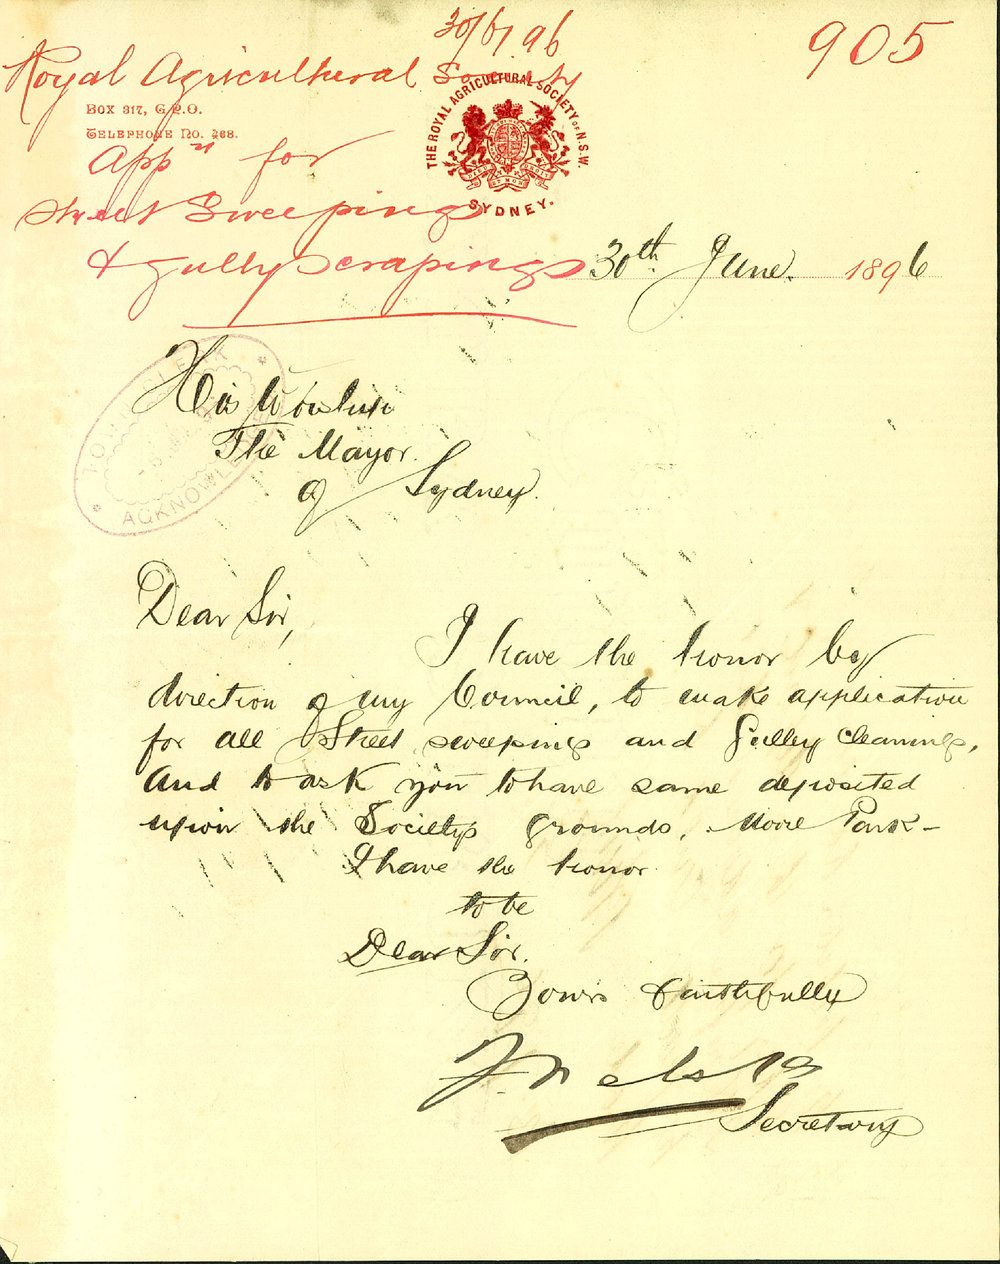 30/6/96
905
Royal Agricultural Society
BOX 317, G.P.O.
TELEPHONE No. 268.
THE ROYAL AGRICULTURAL SOCIETY OF N.S.W.
SYDNEY.
App'n for
Street Sweepings
& gully scrapings
30th June. 1896
TOWN CLERK
ACKNOWLEDGED
His Worship
The Mayor.
of Sydney.
Dear Sir,
I have the honor by
direction of my Council, to make application
for all Street sweepings and Gulley cleanings,
and to ask you to have same deposited
upon the Society's grounds, Moore Park-
I have the honor
to be
Dear Sir.
Yours faithfully
Secretary